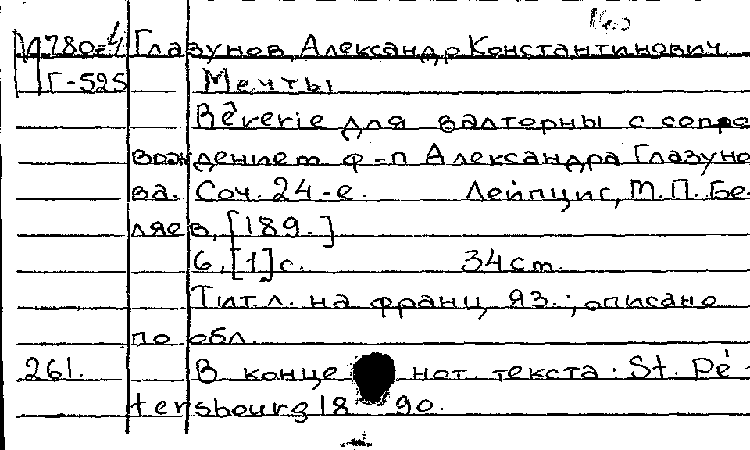 М780-4 Глазунов, Александр Константинович
Г-525 Мечты
Rêverie для валторны с сопро-
вождением ф-п Александра Глазуно-
ва. Соч. 24-е. Лейпциг, М. П. Бе-
ляев, [189.]
6, [1] с. 34 см.
Тит. л. на франц. яз.; описано
по обл.
261. В конце нот. текста: St. Pé-
tersbourg 18 90.